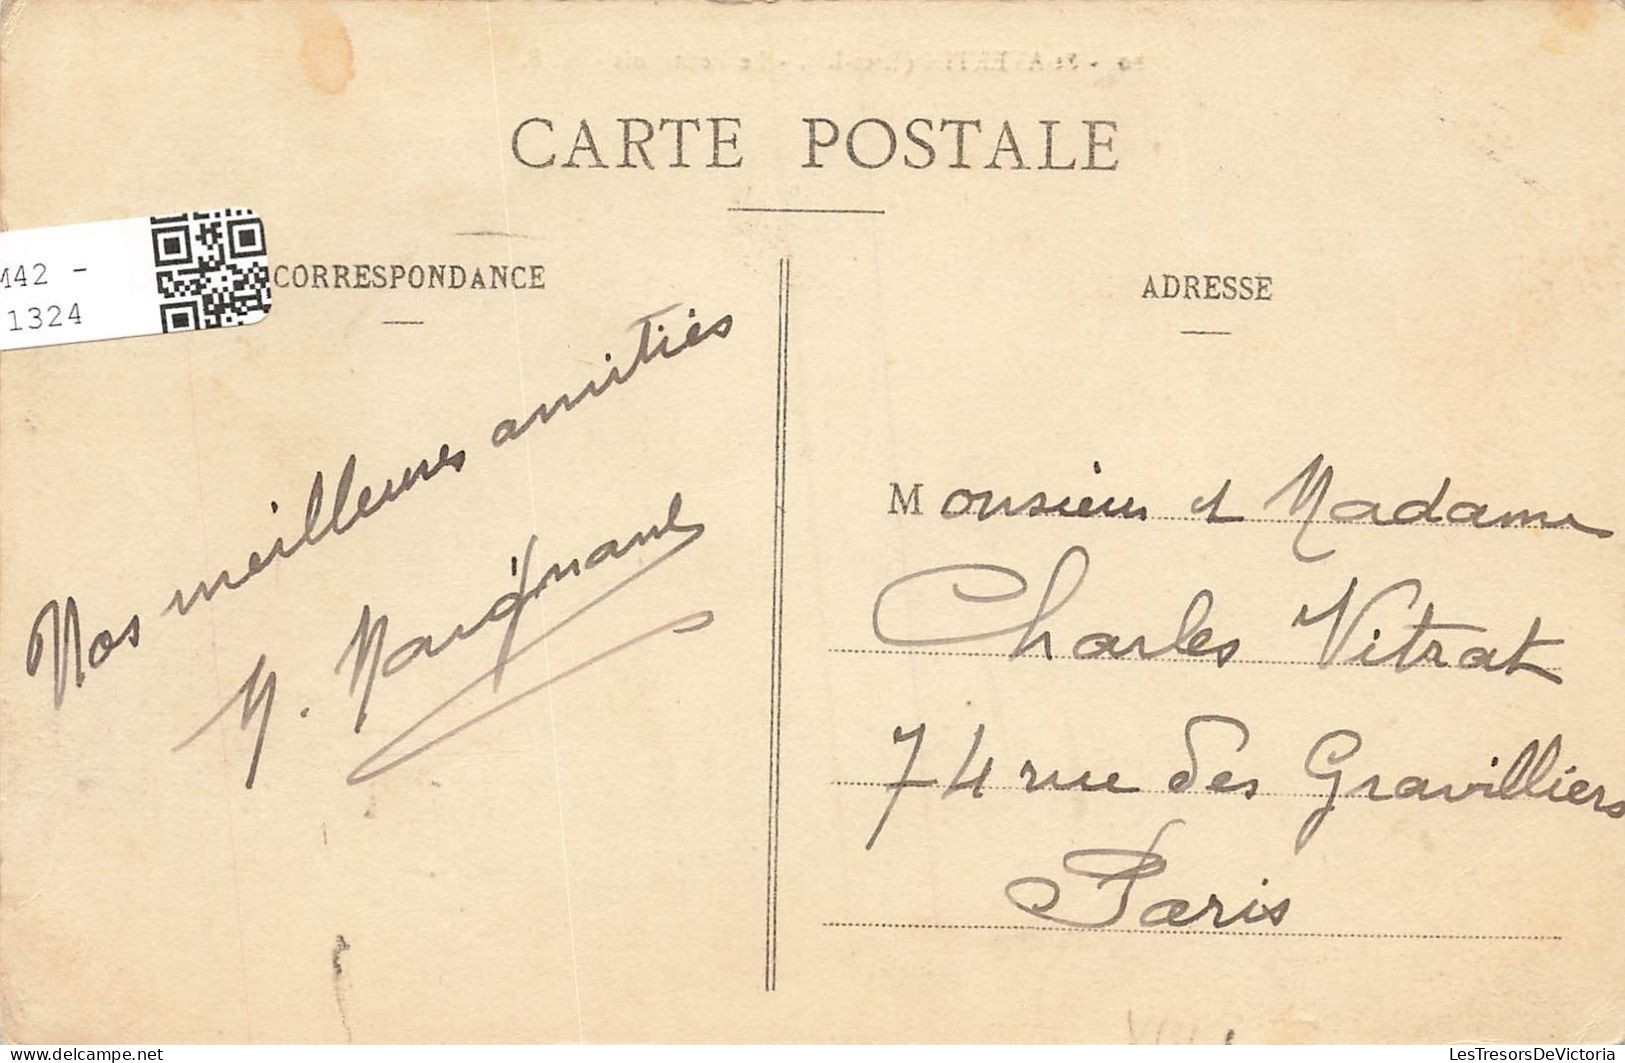 CARTE POSTALE
M42 -
1324
CORRESPONDANCE
Nos meilleures amitiés
M.
ADRESSE
Monsieur et Madame
Charles Vitrat
74 rue des Gravilliers
Paris
LesTresorsDeVictoria